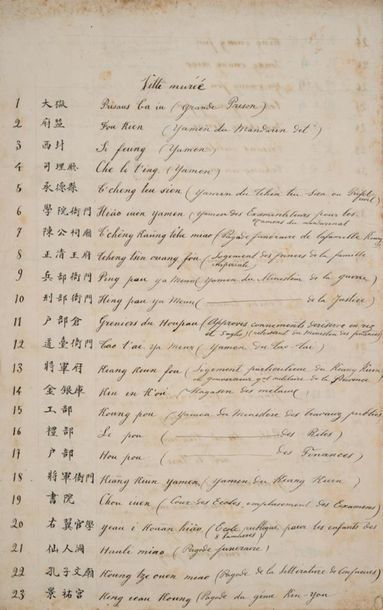 Ville murée
1 大獄 Prisons Ta iu (Grande Prison)
2 府 Fou Kien (Yamen du Mandarin del
3 西封 Si feung (Yamen)
4 司理廳 Che le t'ing. (Yamen)
5 承德縣 Tcheng teu sien (Yamen du Tchin teu Sien ou Préfet
6 學院衙門 Hiao uen yamen (Yamen des Examinateurs pour les
Examens du mandarinat
7 陳公祠廟 Tchêng Kaung tche miao (Pagode funéraire de la famille Kung
8 正清王府 Tcheng tsin ouang fou (Logement des princes de la famille
impériale
9 兵部衙門 Ping pou ya Menn (Yamen du Ministère de la guerre)
10 刑部衙門 Hing pou ya Menn ( de la Justice)
11 户部倉 Greniers du Houpou (Approvisionnements
12 道臺衙門 Tao t'ae ya Menn (Yamen du Tao-tai)
13 將軍府 Kiang Kiun fou (Logement particulier du Kiang Kiun,
de la Province
14 金銀庫 Kin en K'ou (Magasin des métaux
15 工部 Koung pou (Yamen du Ministère des travaux publics
16 禮部 Le pou ( des Rites)
17 户部 Hou pou ( des Finances)
18 將軍衙門 Kiang Kiun Yamen (Yamen du Kiang Kiun)
19 書院 Chou uen (Cour des Ecoles, emplacement des Examens)
20 右翼官學 yeau i Kouan hiao (Ecole publique pour les enfants des
8 bannières)
21 仙人洞 miao (Pagode funéraire)
22 孔子文廟 Koung tze ouen miao (Pagode de la littérature de Confucius)
23 景祐宮 King yeau Koung (Pagode du génie Kin-You